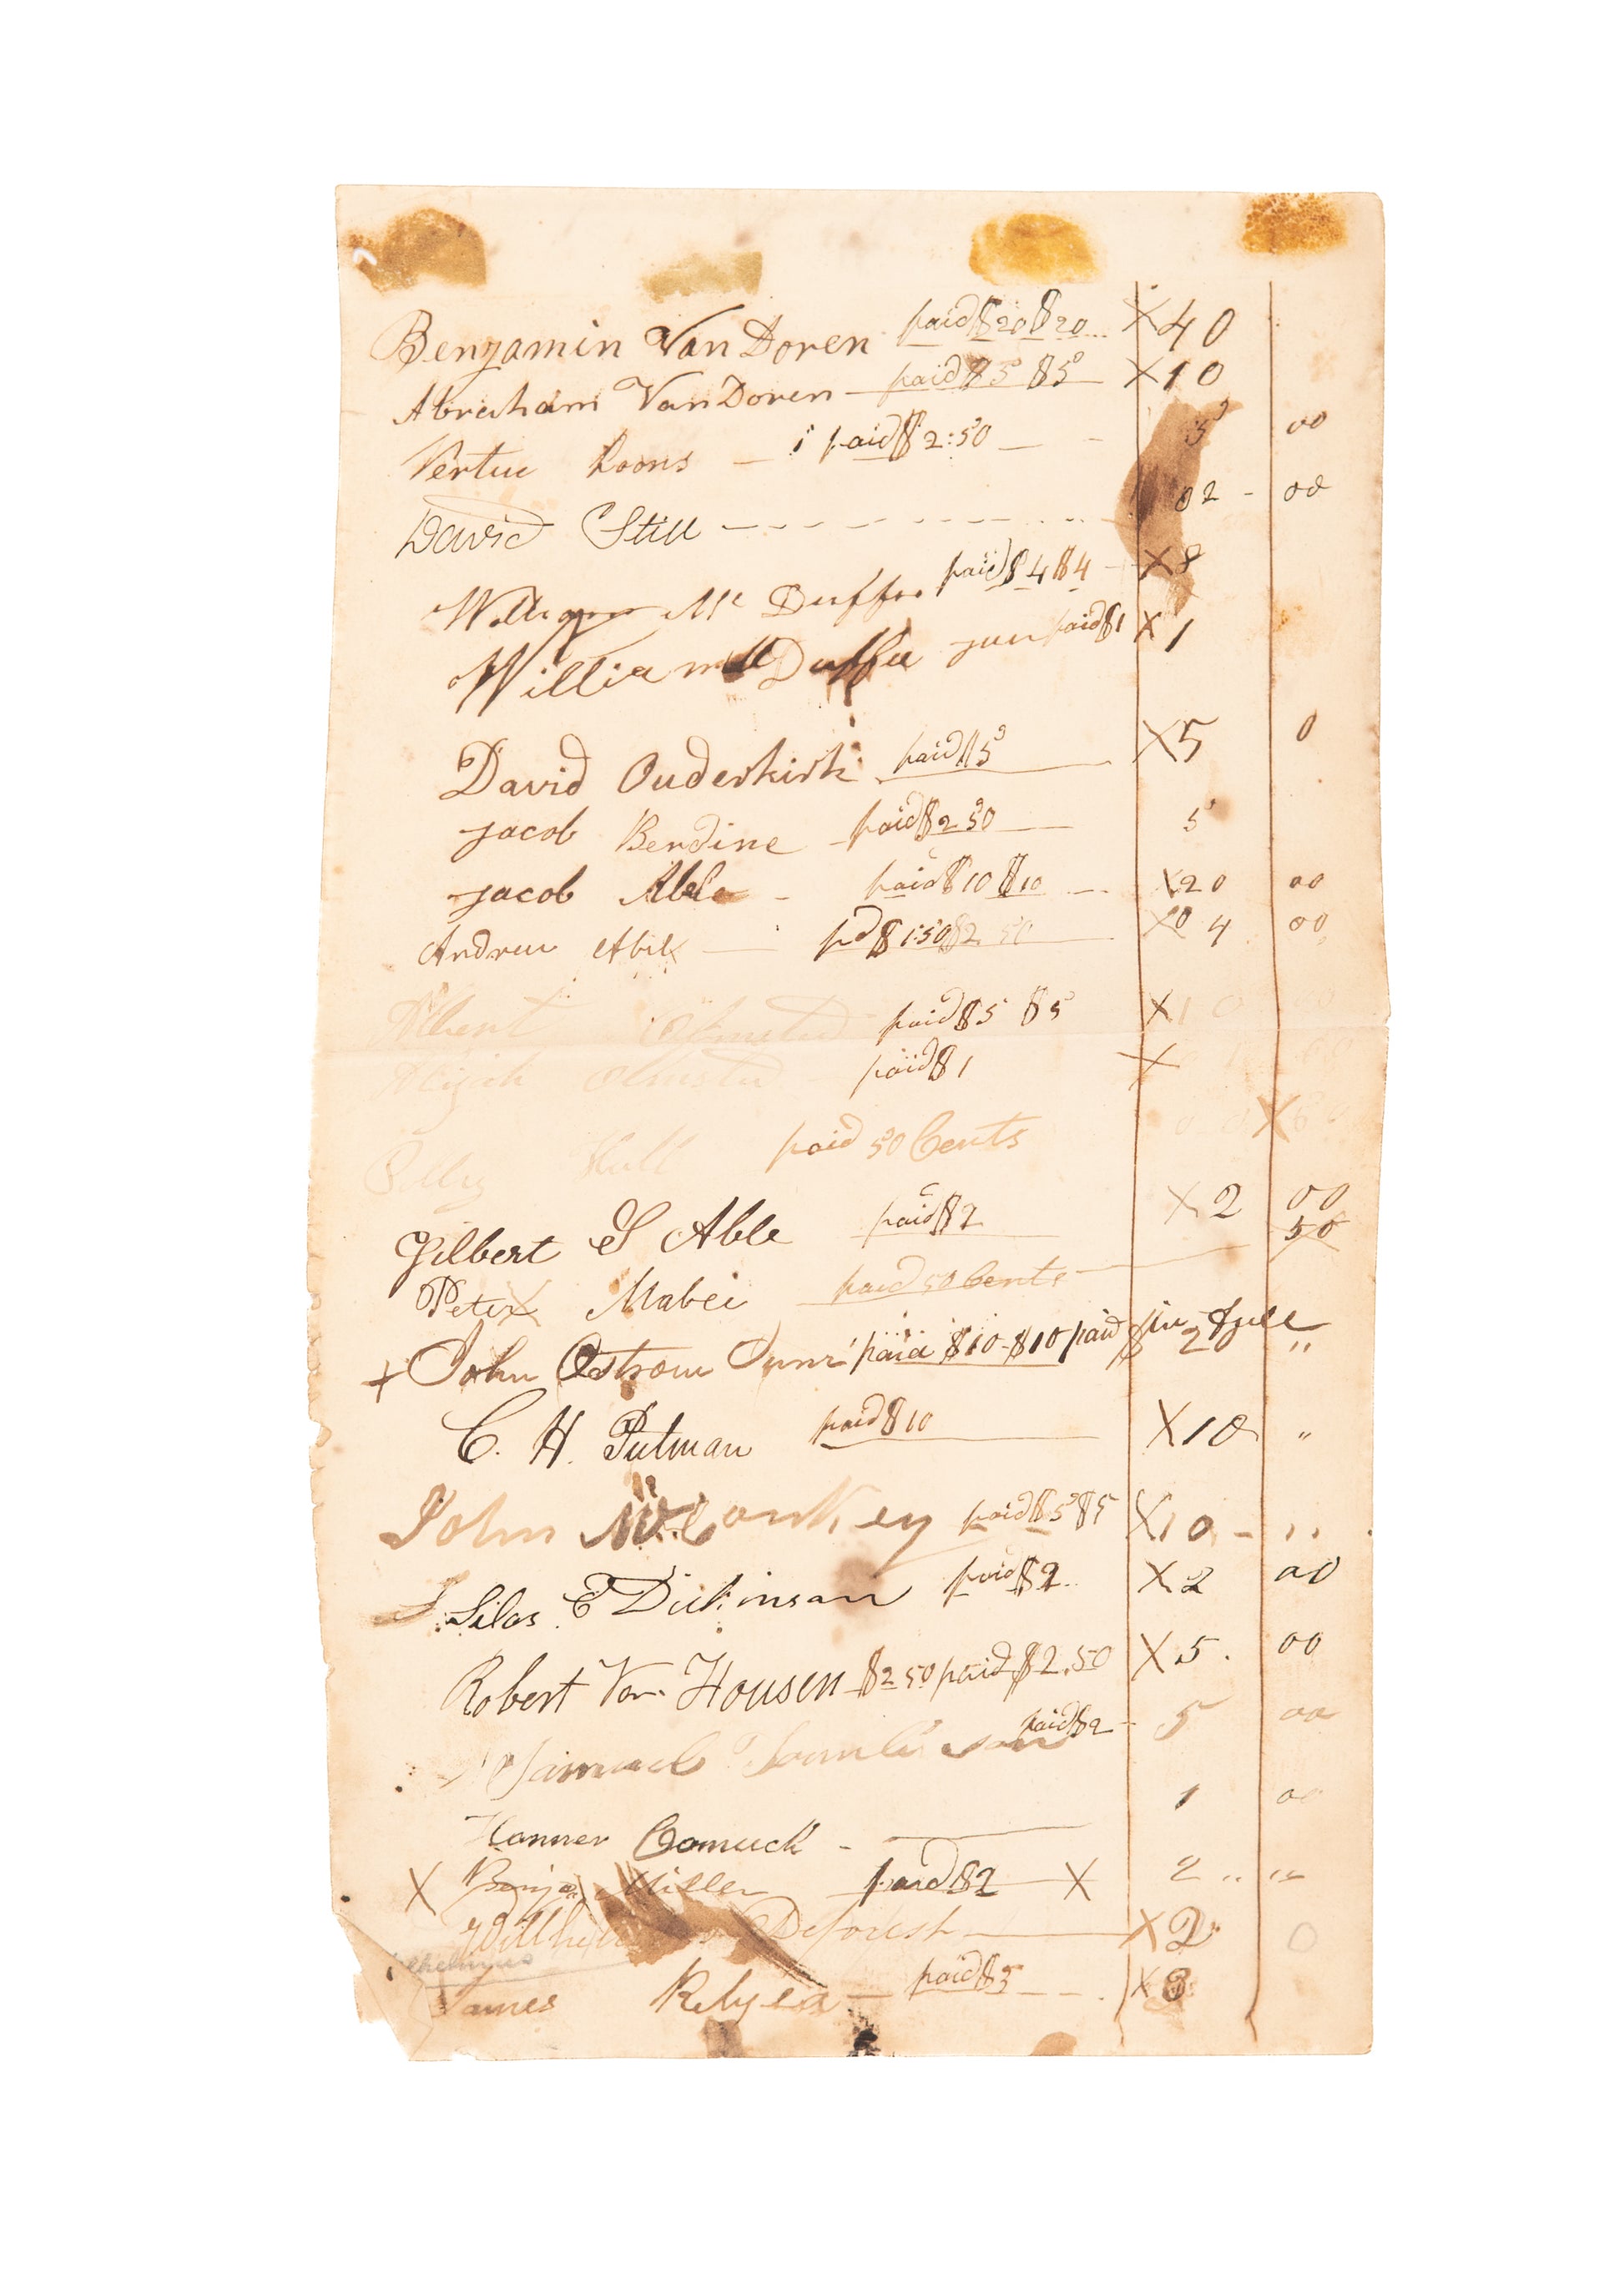 Benjamin Van Doren paid $20 $20 X 40
Abraham Van Doren paid $5 $5 X 10
Vertue Loons paid $2:50 5 00
David Still 02 - 00
William Mc Duffee paid $4 $4 X 8
William Mc Duffee jun paid $1 X 1
David Ouderkirk paid $5 X 5 0
Jacob Berdine paid $2 50 5
Jacob Able paid $10 $10 X 20 00
Andrew Abel pd $1:50 $2 50 X 04 00
Albert Olmsted paid $5 $5 X 10 00
Elijah Olmsted paid $1 X
Hull paid 50 Cents X
Gilbert S Able paid $2 X 2 00
Peter Mabei paid 50 Cents 50
+ John Ostrom Junr paid $10 - $10 paid in full 2 "
C. H. Putman paid $10 X 10 "
John McConkey paid $5 $5 X 10 - "
Silas E Dickinson paid $2 X 2 00
Robert Van Housen $2 50 paid $2.50 X 5. 00
Samuel Tomlinson paid $2 - 5 00
Hanner Comuck - 1 00
X Benja Miller paid $2 X 2 " "
Deforest X 2 0
James Relyea paid $3 X 3